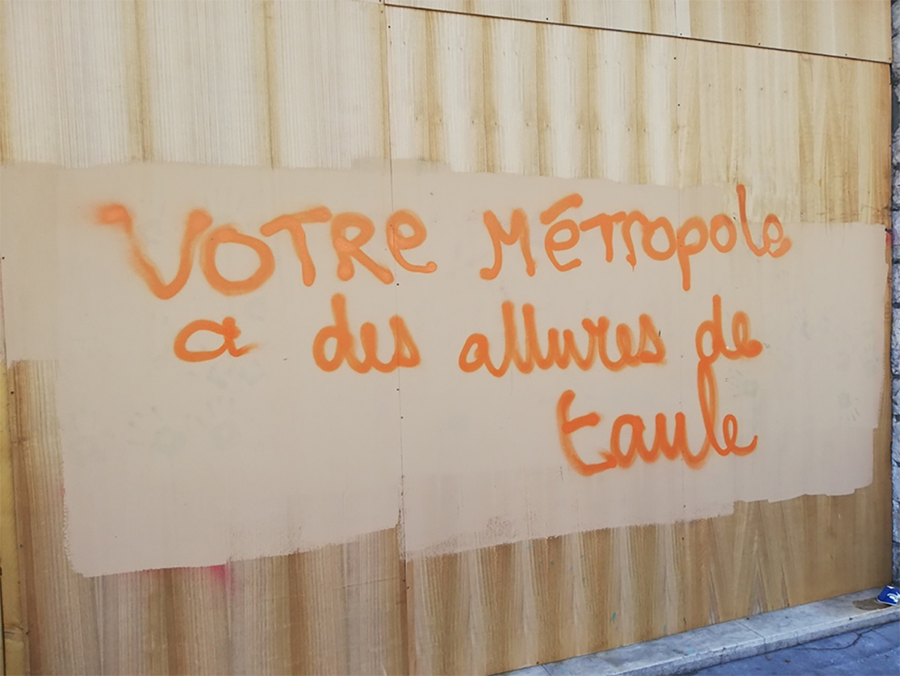 VOTRE MÉTROPOLE
a des allures de
taule